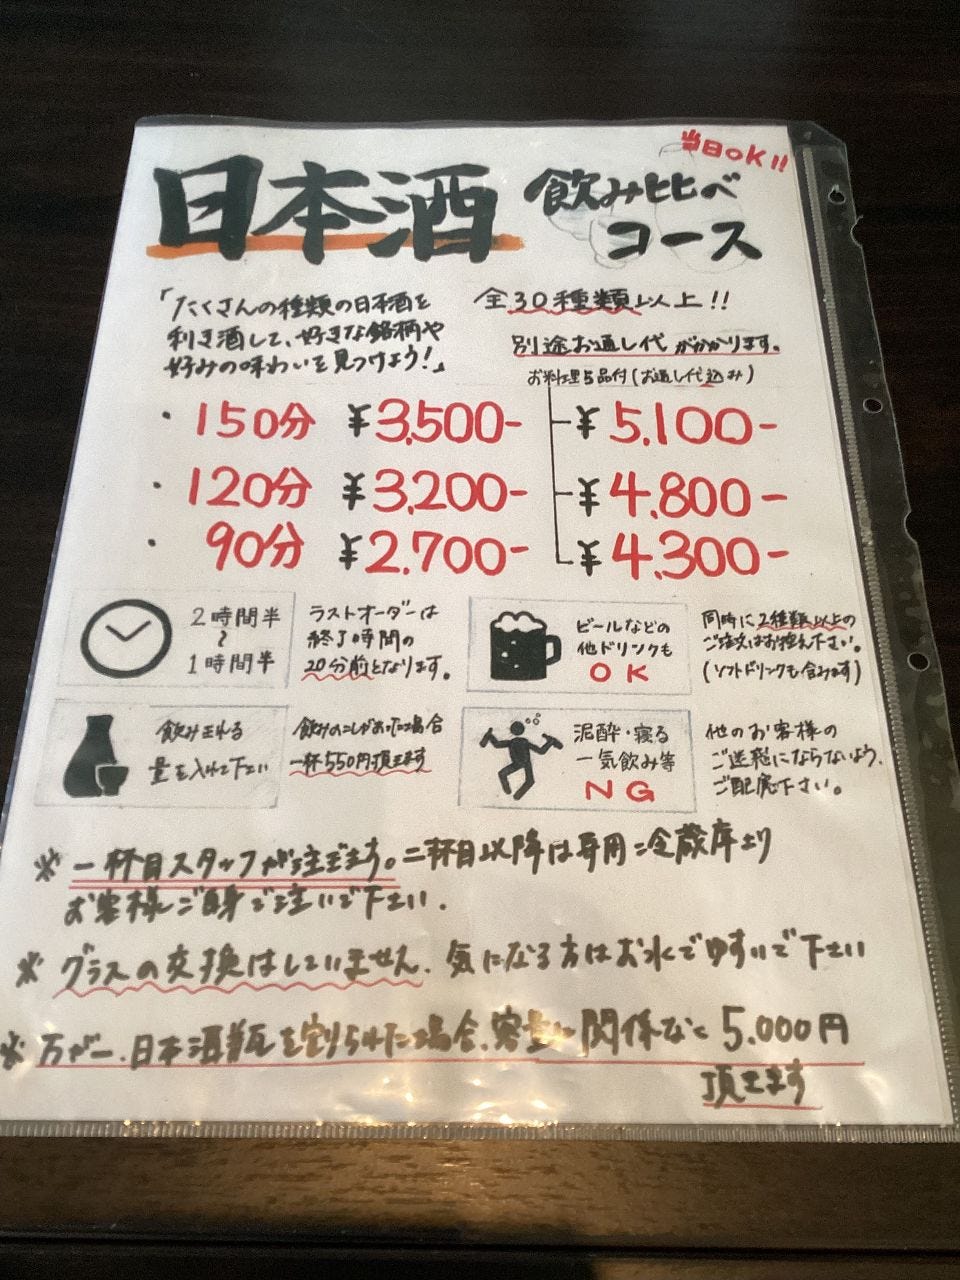 当日OK!!
日本酒 飲み比べ
コース
「たくさんの種類の日本酒を
利き酒して、好きな銘柄や
好みの味わいを見つけよう!」
全30種類以上!!
別途お通し代がかかります。
お料理5品付(お通し代込み)
・150分 ¥3,500- ¥5,100-
・120分 ¥3,200- ¥4,800-
・90分 ¥2,700- ¥4,300-
2時間半
〜
1時間半
ラストオーダーは
終了時間の
20分前となります。
ビールなどの
他ドリンクも
OK
同時に2種類以上の
ご注文はお控え下さい。
(ソフトドリンクも含みます)
飲みきれる
量を入れて下さい
飲みのこしがあった場合
一杯550円頂きます
泥酔・寝る
一気飲み等
NG
他のお客様の
ご迷惑にならないよう、
ご配慮下さい。
※一杯目スタッフが注ぎます。二杯目以降は専用冷蔵庫より
お客様ご自身で注いで下さい.
※グラスの交換はしていません. 気になる方はお水でゆすいで下さい
※万が一、日本酒瓶を割られた場合、容量に関係なく5,000円
頂きます